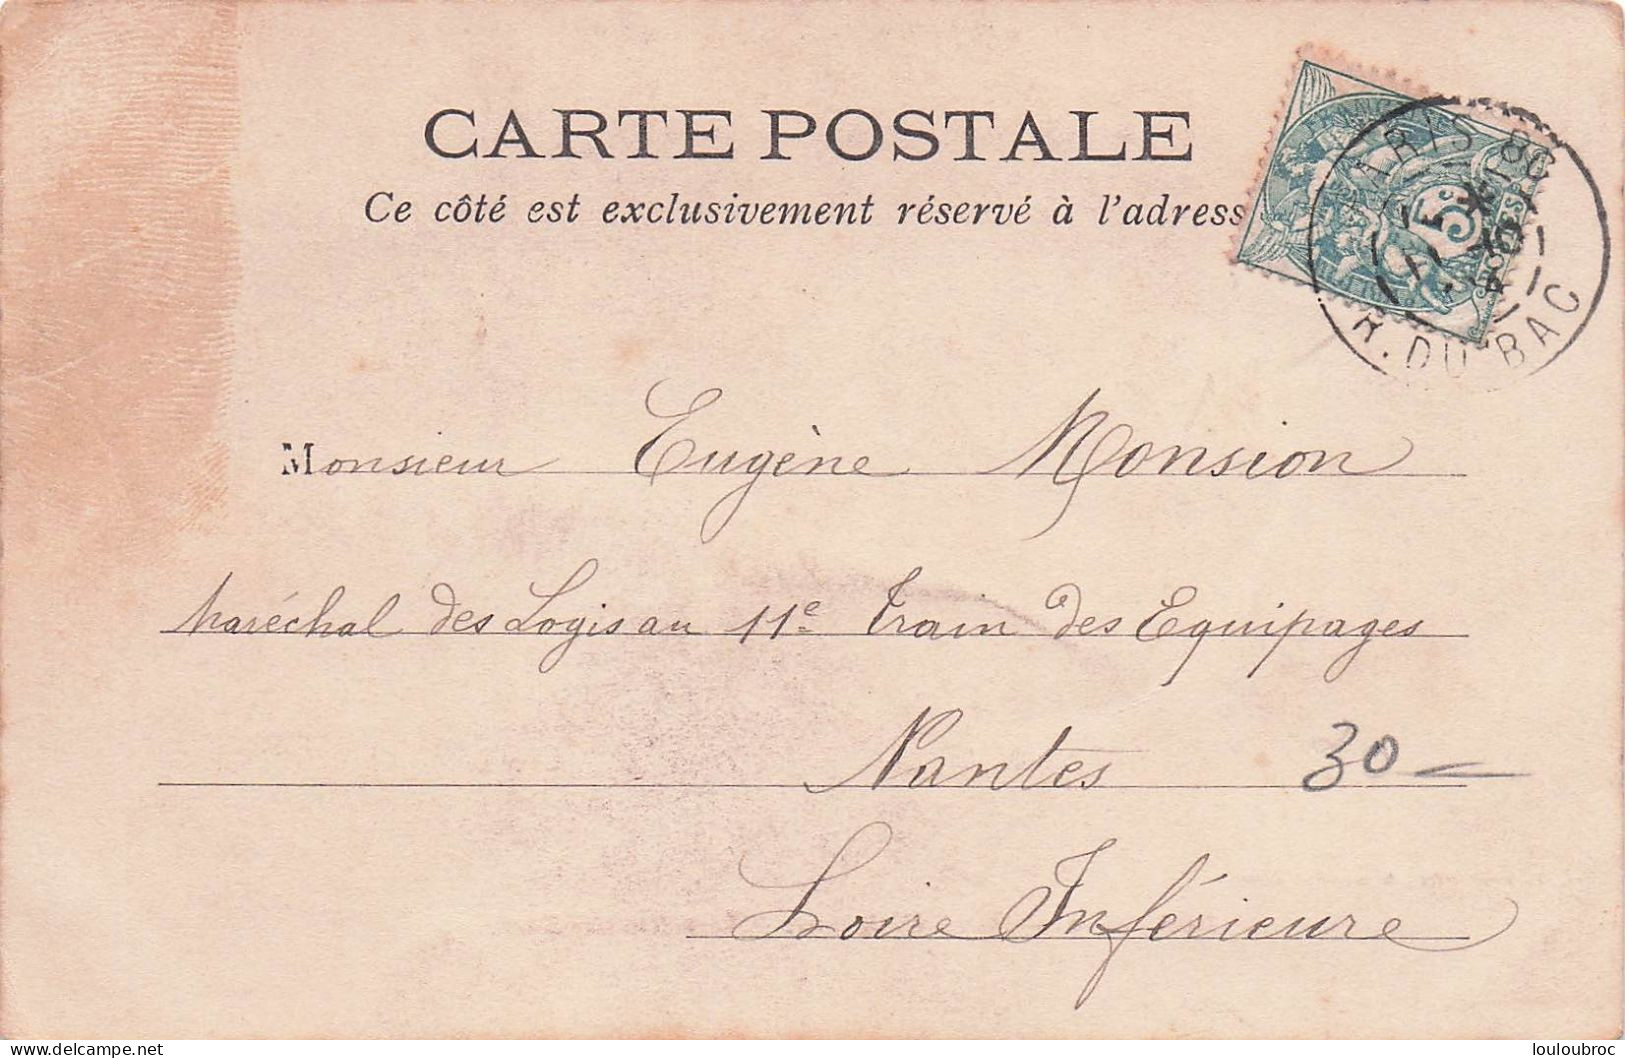 CARTE POSTALE
Ce côté est exclusivement réservé à l'adress
PARIS
5c
R. DU BAC
Monsieur Eugène Monsion
Maréchal des Logis au 11e Train des Equipages
Nantes 30 —
Loire Inférieure
delcampe.net
louloubroc